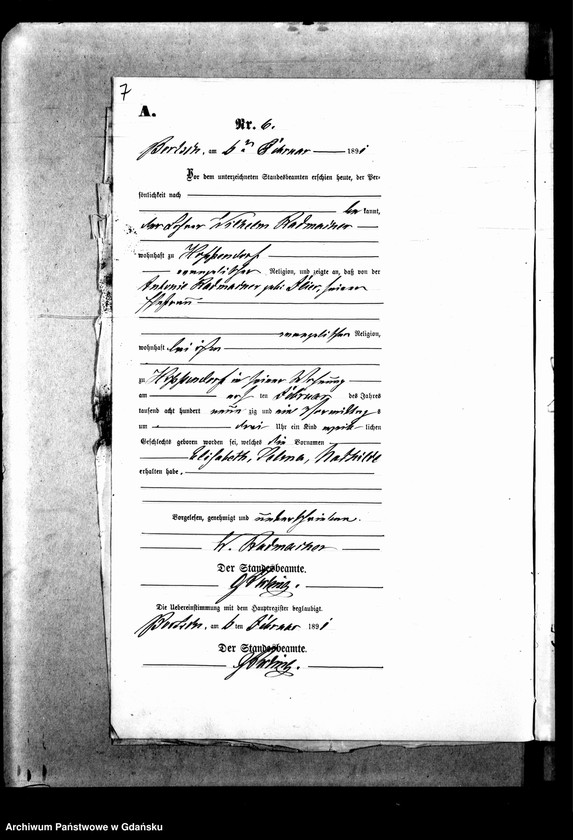 7
A.
Nr. 6.
am 6ten Februar 1891
Vor dem unterzeichneten Standesbeamten erschien heute, der Per-
sönlichkeit nach
be kannt,
der Wilhelm Radmacher
wohnhaft zu Hoppendorf
evangelischer Religion, und zeigte an, daß von der
Antonie Radmacher geb. seiner
Ehefrau
evangelischer Religion,
wohnhaft bei ihm
zu Hoppendorf in seiner Wohnung
am ten Februar des Jahres
tausend acht hundert neun zig und ein Vormittags
um drei Uhr ein Kind weib lichen
Geschlechts geboren worden sei, welches die Vornamen
Elisabeth, Selma, Mathilde
erhalten habe.
Vorgelesen, genehmigt und unterschrieben.
W. Radmacher
Der Standesbeamte.
Die Uebereinstimmung mit dem Hauptregister beglaubigt.
am 6 ten Februar 1891
Der Standesbeamte.
Archiwum Państwowe w Gdańsku